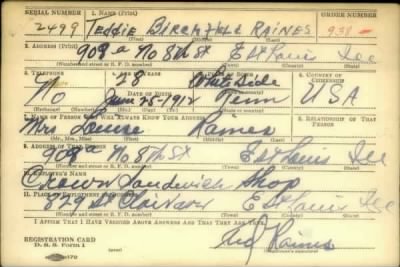 SERIAL NUMBER 1. NAME (Print) ORDER NUMBER
2499 TEDDIE BIRCHFIELD RAINES 938
2. ADDRESS (Print)
909a No 8th St E St Louis Ill
(Number and street or R. F. D. number) (Town) (County) (State)
3. TELEPHONE 4. AGE IN YEARS 5. PLACE OF BIRTH 6. COUNTRY OF CITIZENSHIP
28
DATE OF BIRTH
June 25-1912 Tenn USA
(Exchange) (Number) (Mo.) (Day) (Yr.) (State or country)
7. NAME OF PERSON WHO WILL ALWAYS KNOW YOUR ADDRESS 8. RELATIONSHIP OF THAT PERSON
Mrs Louise Raines
(Mr., Mrs., Miss) (First) (Middle) (Last)
9. ADDRESS OF THAT PERSON
909a No 8th St E St Louis Ill
(Number and street or R. F. D. number) (Town) (County) (State)
10. EMPLOYER'S NAME
Sandwich Shop
11. PLACE OF EMPLOYMENT OR BUSINESS
E St Louis Ill
(Number and street or R. F. D. number) (Town) (County) (State)
I AFFIRM THAT I HAVE VERIFIED ABOVE ANSWERS AND THAT THEY ARE TRUE.
REGISTRATION CARD
D. S. S. Form 1
Ted Raines